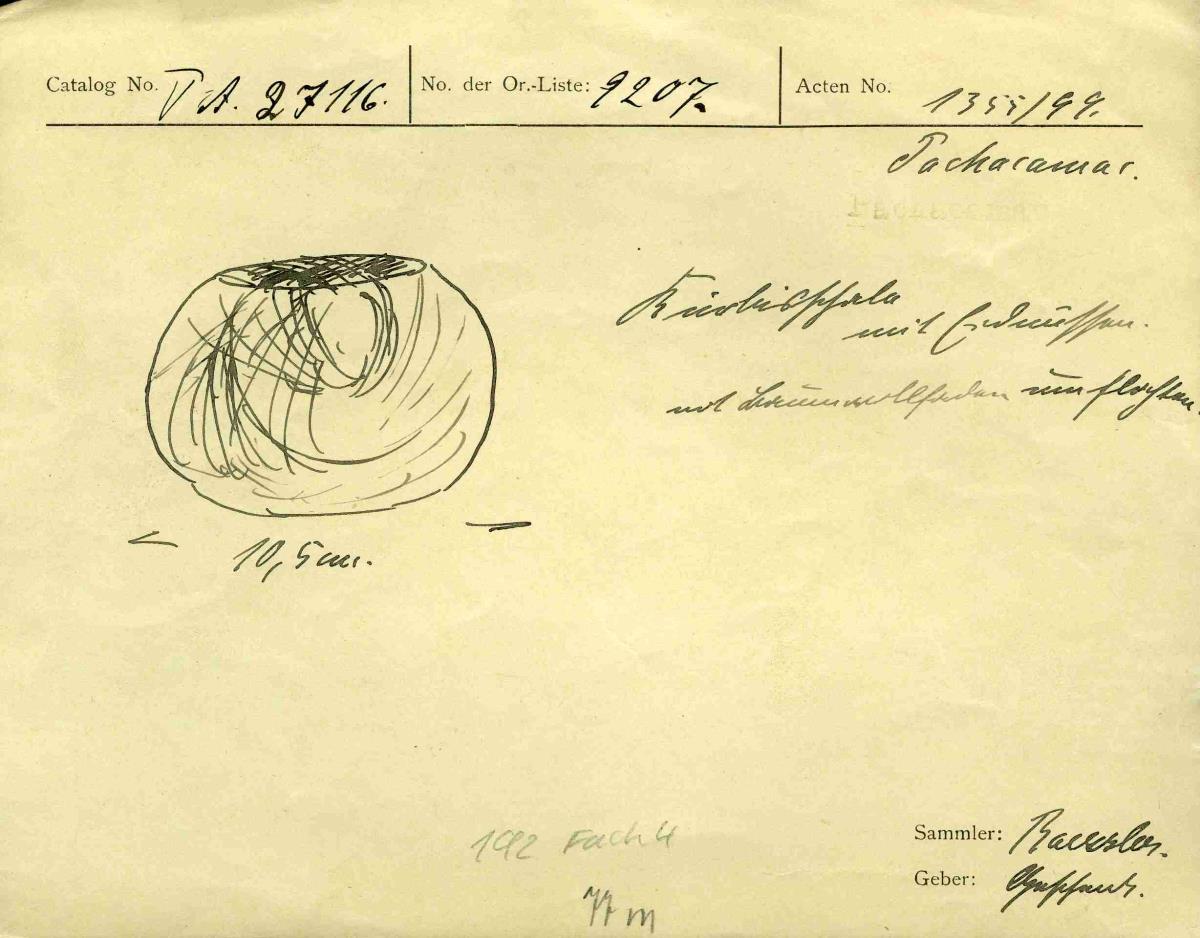 Catalog No. V A. 27116. No. der Or.-Liste: 9207. Acten No. 1355/99.
Pachacamac.
Kürbisschale
mit Erdnüssen.
mit Baumwollfaden umflochten.
10,5 cm.
192 Fach 4
Sammler: Baessler.
Geber: Geschenk.